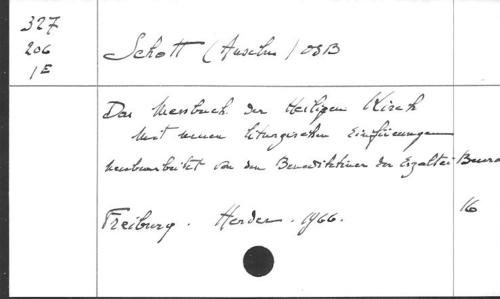 327
206
1E
Schott (Anselm) OSB
Das Messbuch der Heiligen Kirch
Mit neuen liturgischen Einführungen
neubearbeitet von den Benediktiner der Erzabtei Beuro
Freiburg. Herder. 1966.
16